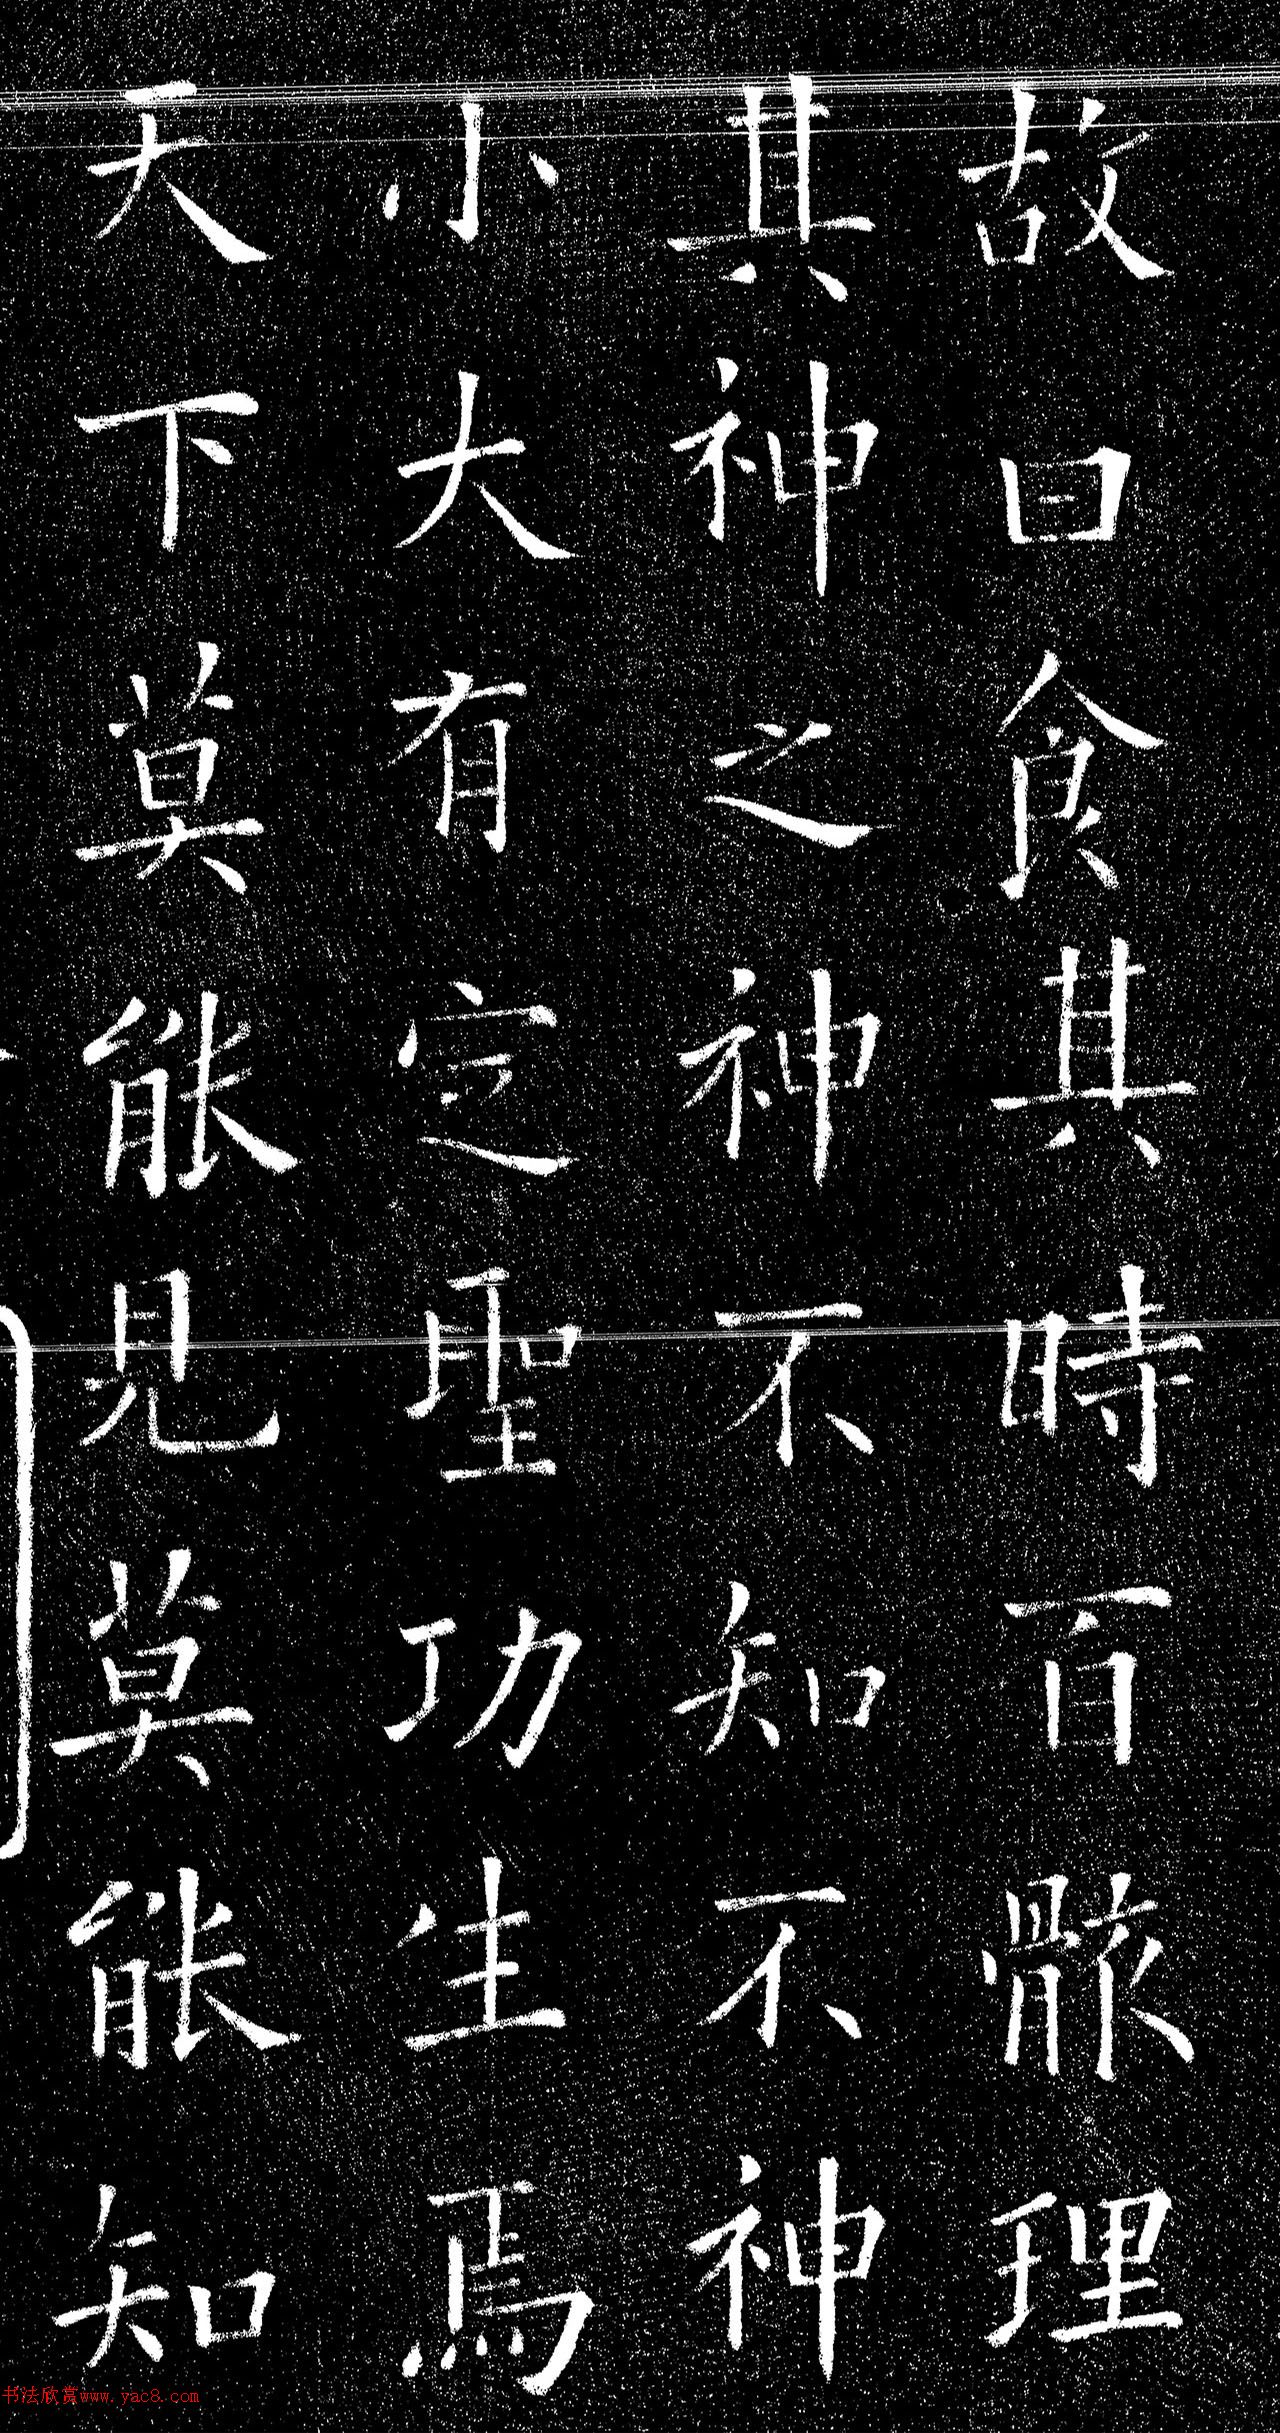 故曰食其時百骸理
其神之神不知不神
小大有定聖功生焉
天下莫能見莫能知
书法欣赏www.yac8.com